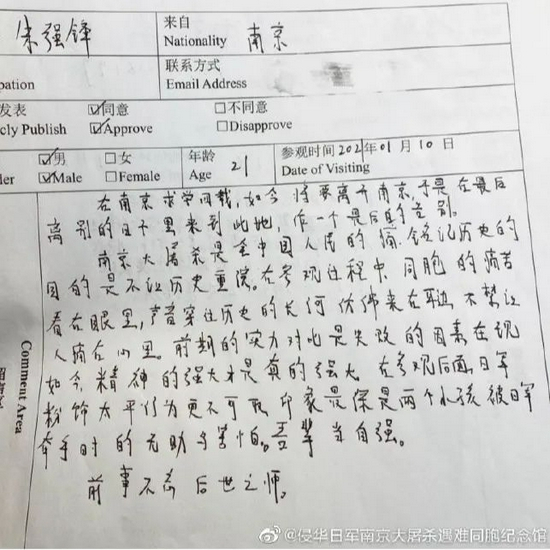 朱强锋
来自
Nationality 南京
联系方式
Email Address
pation
发表 ☑同意 □不同意
cly Publish ☑Approve □Disapprove
☑男 □女 年龄 21 参观时间 202 年 01 月 10 日
der ☑Male □Female Age Date of Visiting
在南京求学四载,如今将要离开南京,于是在最后
离别的日子里来到此地,作一个最后的告别。
南京大屠杀是全中国人民的痛,铭记历史的
目的是不让历史重演。在参观过程中,同胞的痛苦
看在眼里,声音穿过历史的长河仿佛来在耳边,不禁让
人痛在心里。前期的实力对比是失败的因素在现
如今精神的强大才是真的强大。在参观后面,日军
粉饰太平行为更不可取,印象最深是两个小孩被日军
牵手时的无助与害怕。吾辈当自强。
前事不忘 后世之师。
Comment Area
@侵华日军南京大屠杀遇难同胞纪念馆